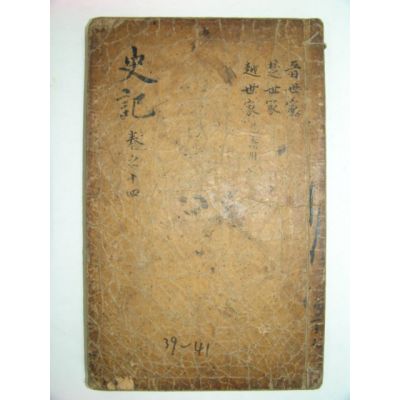 晉世家
楚世家
越世家
史記
卷之十四
39~41